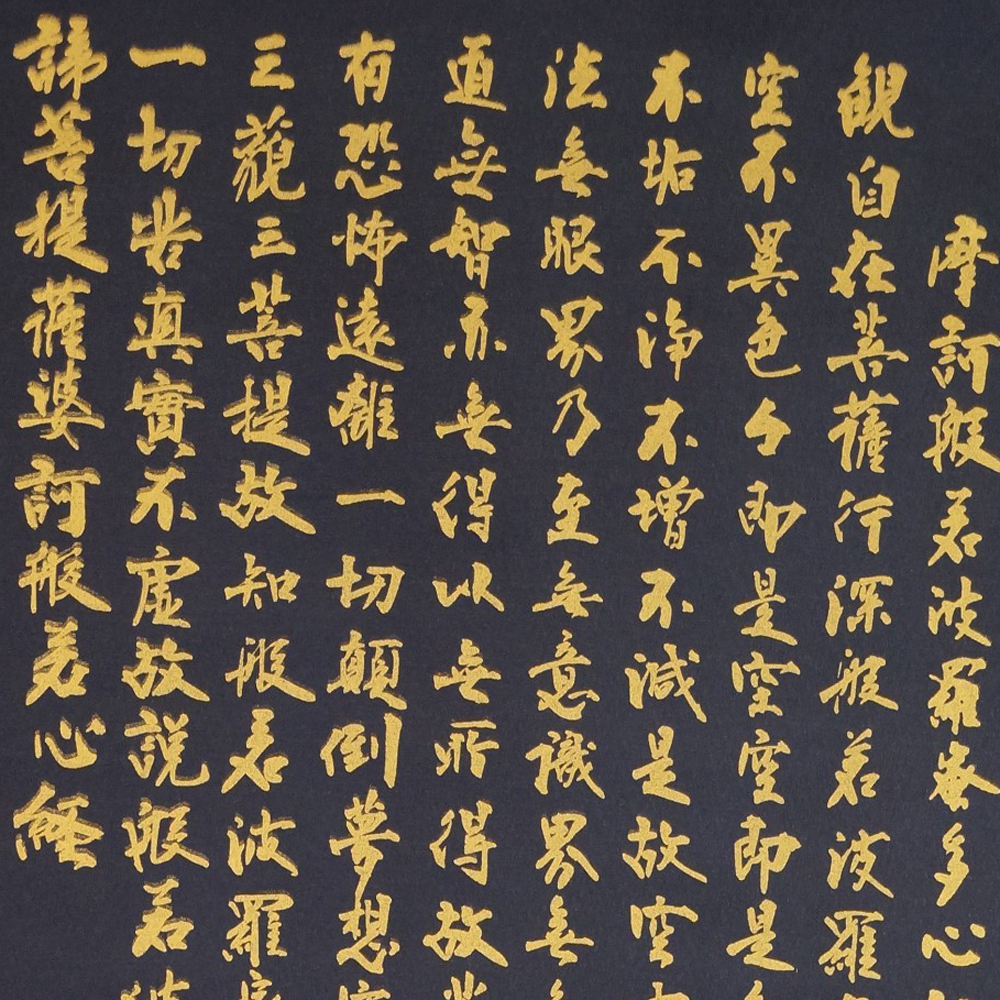 摩訶般若波羅蜜多心
観自在菩薩行深般若波羅
空不異色々即是空空即是
不垢不浄不増不減是故空
法無眼界乃至無意識界無
道無智亦無得以無所得故
有恐怖遠離一切顛倒夢想
三藐三菩提故知般若波羅
一切苦真實不虚故説般若
諦菩提薩婆訶般若心経